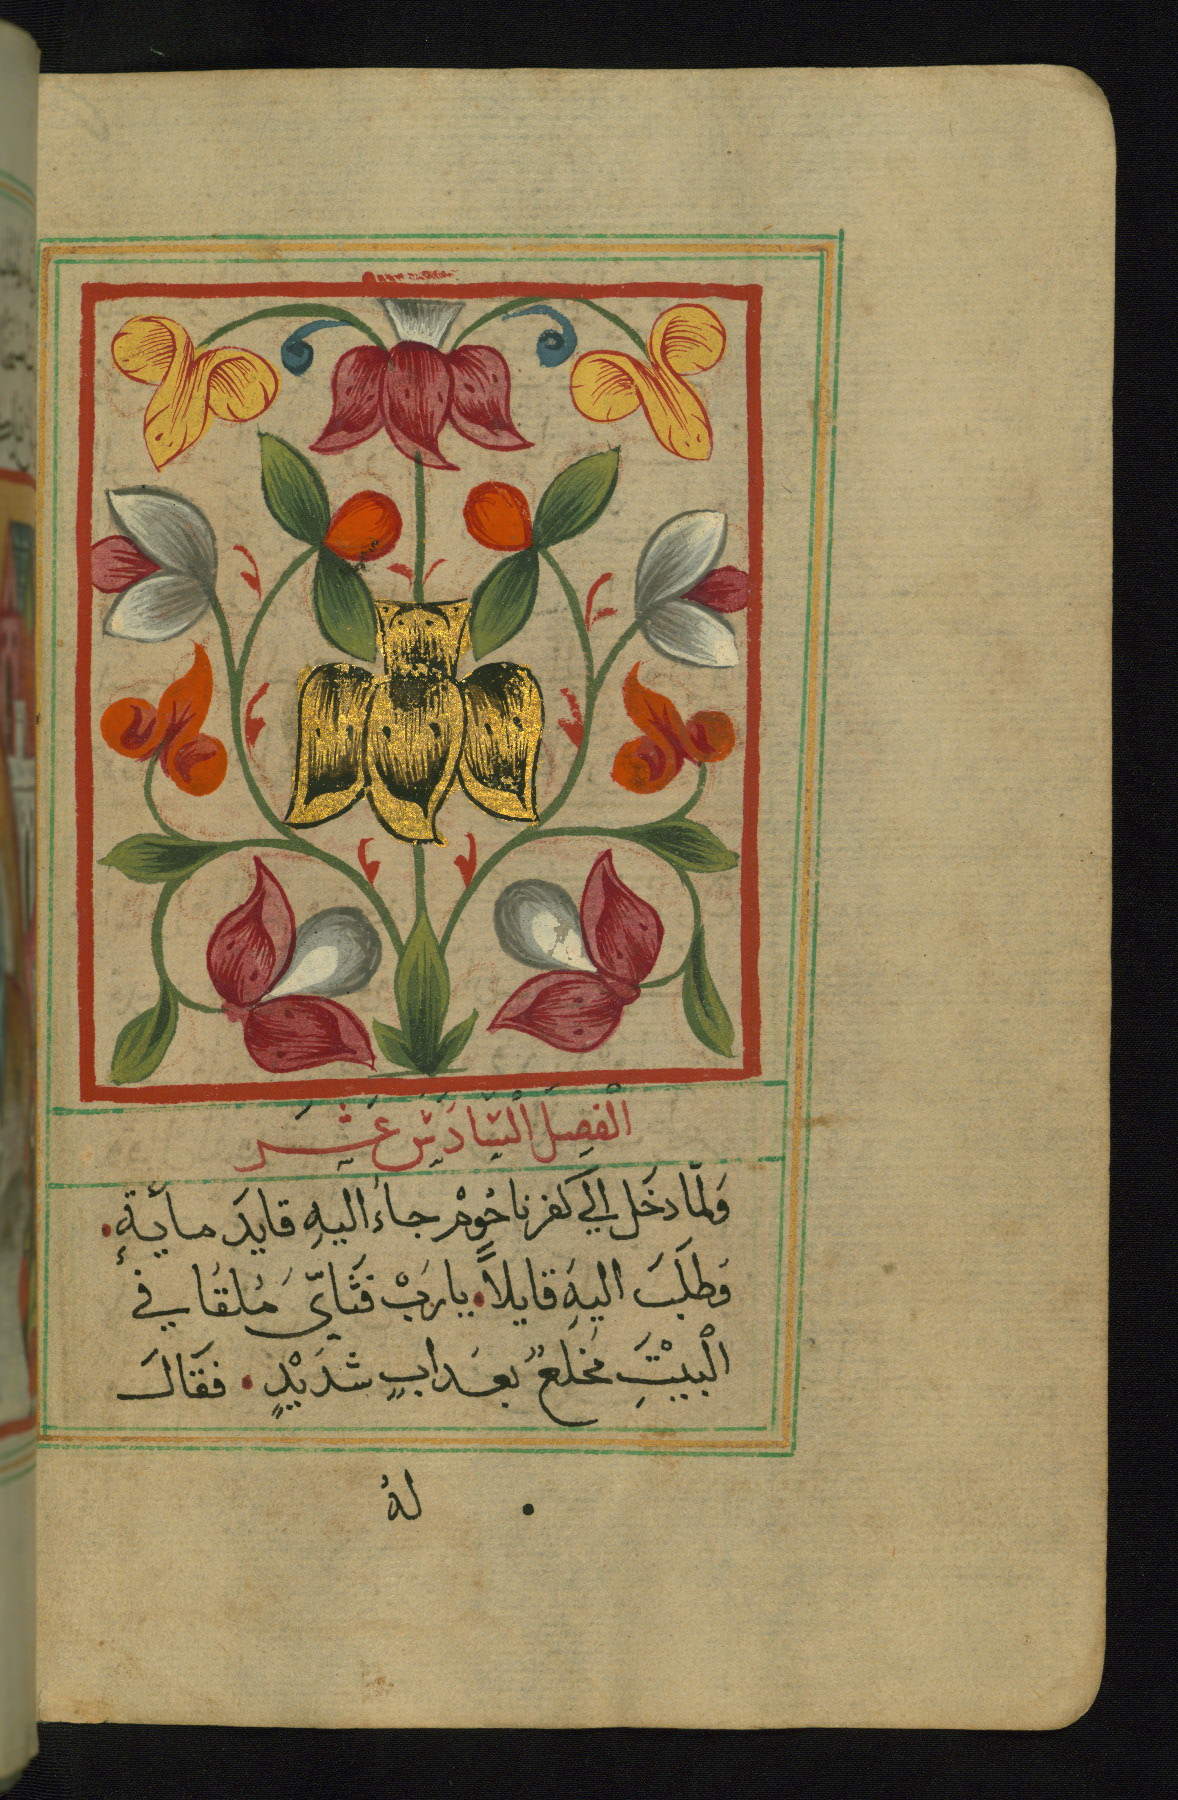 الْفصِل السَّادسَ عَشَر
وَلمَّا دخَل الي كفرناحُومْ جاءَ اليهِ قايدَ مايةٍ.
وَطلَبَ اليهِ قايلاً. يارَبْ فَتَايّ مُلقَا في
الْبيْتَ مُخلعٌ بعدابٍ شدَيْدٍ. فقَالَ
لهُ